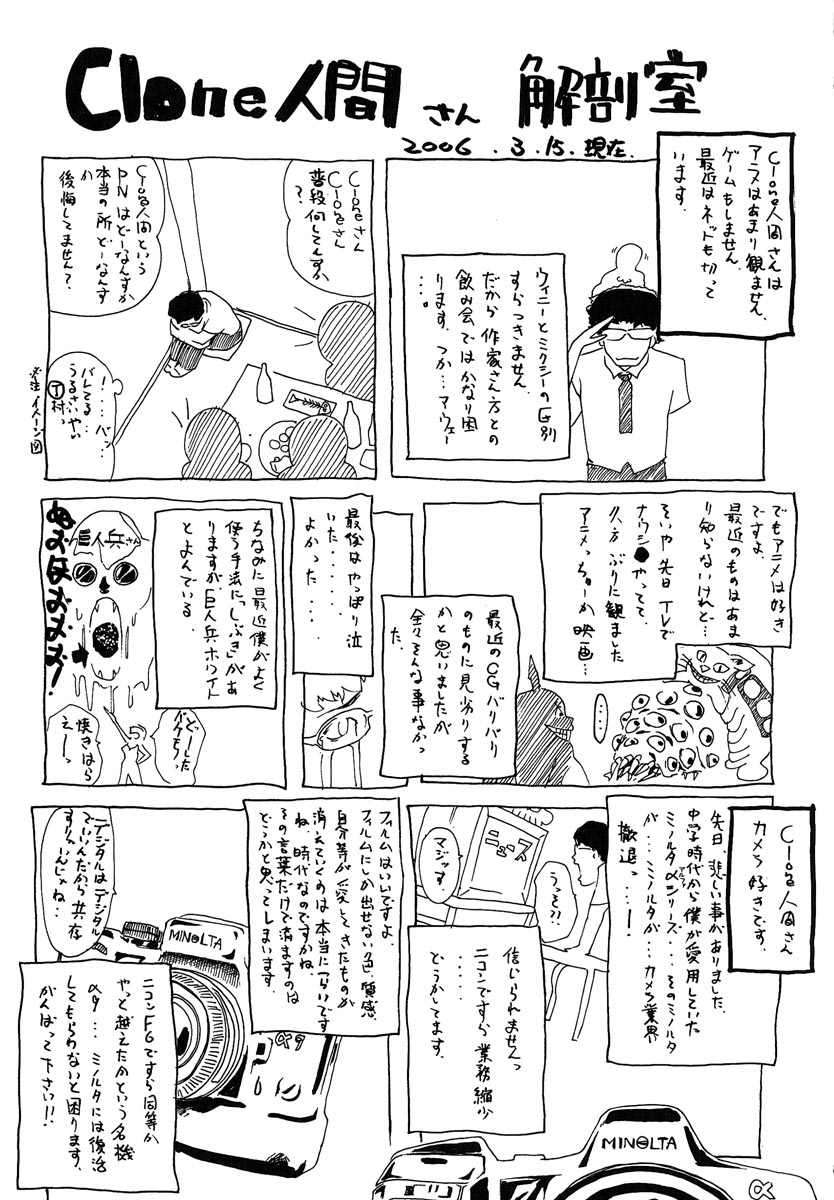 Clone人間さん 解剖室
2006.3.15.現在.
Clone人間さんは
アニメはあまり観ません、
ゲームもしません
最近はネットも切って
います。
ウィニーとミクシーの区別
すらつきません
だから作家さん方との
飲み会ではかなり困
ります、つか…アウェー
…。
Cloneさん
Cloneさん
普段何してんすか
?
Clone人間という
PNはどーなんすか
本当の所どーなんす
か
後悔してません?
!…バッ
バレてる…
うるさいやい
T村っ
※注 イメージ図
でもアニメは好き
ですよ、
最近のものはあま
り知らないけれど…
そいや先日TVで
ナウシ●やってて
久方ぶりに観ました
アニメっちゅーか映画…
…
最近のCGバリバリ
のものに見劣りする
かと思いましたが
全くそんな事なかっ
た、
最後はやっぱり泣
いた……
よかった…
ちなみに最近僕がよく
使う手法に「しぶき」があ
りますが、巨人兵ホワイト
とよんでいる、
巨人兵さん
ぬおほおおお!
どーした
バケモノっ
焼きはら
えーっ
Clone人間さん
カメラ好きです、
先日、悲しい事がありました、
中学時代から僕が愛用していた
ミノルタαシリーズ…そのミノルタ
アルファ
が…ミノルタが…カメラ業界
撤退っ…!
うっそ?!
ニュース
マジッす
信じられませんっ
……
ニコンですら業務縮少
どうかしてます、
フィルムはいいですよ、
フィルムにしか出せない色、質感
自分等が愛してきたものが
消えていくのは本当につらいです
ね、時代なのですかね、
その言葉だけで済ますのは
どうかと思ってしまいます、
デジタルはデジタル
でいいんだから共存
すりゃいんじゃね…
MINOLTA
α9
ニコンF6ですら同等か
やっと越えたかという名機
α9…ミノルタには復活
してもらわないと困ります、
がんばって下さい!!
MINOLTA
α